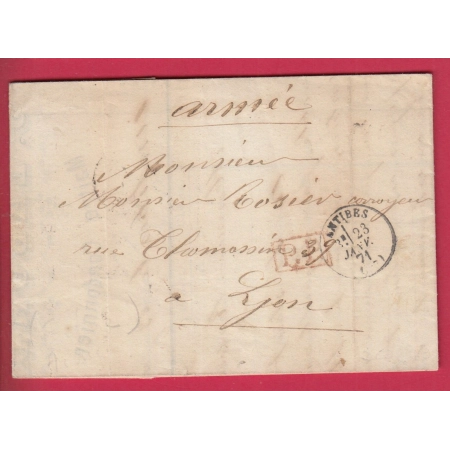 armée
Monsieur
Monsieur Rosier
rue
a Lyon
ANTIBES
23
JANV.
71
P.P.